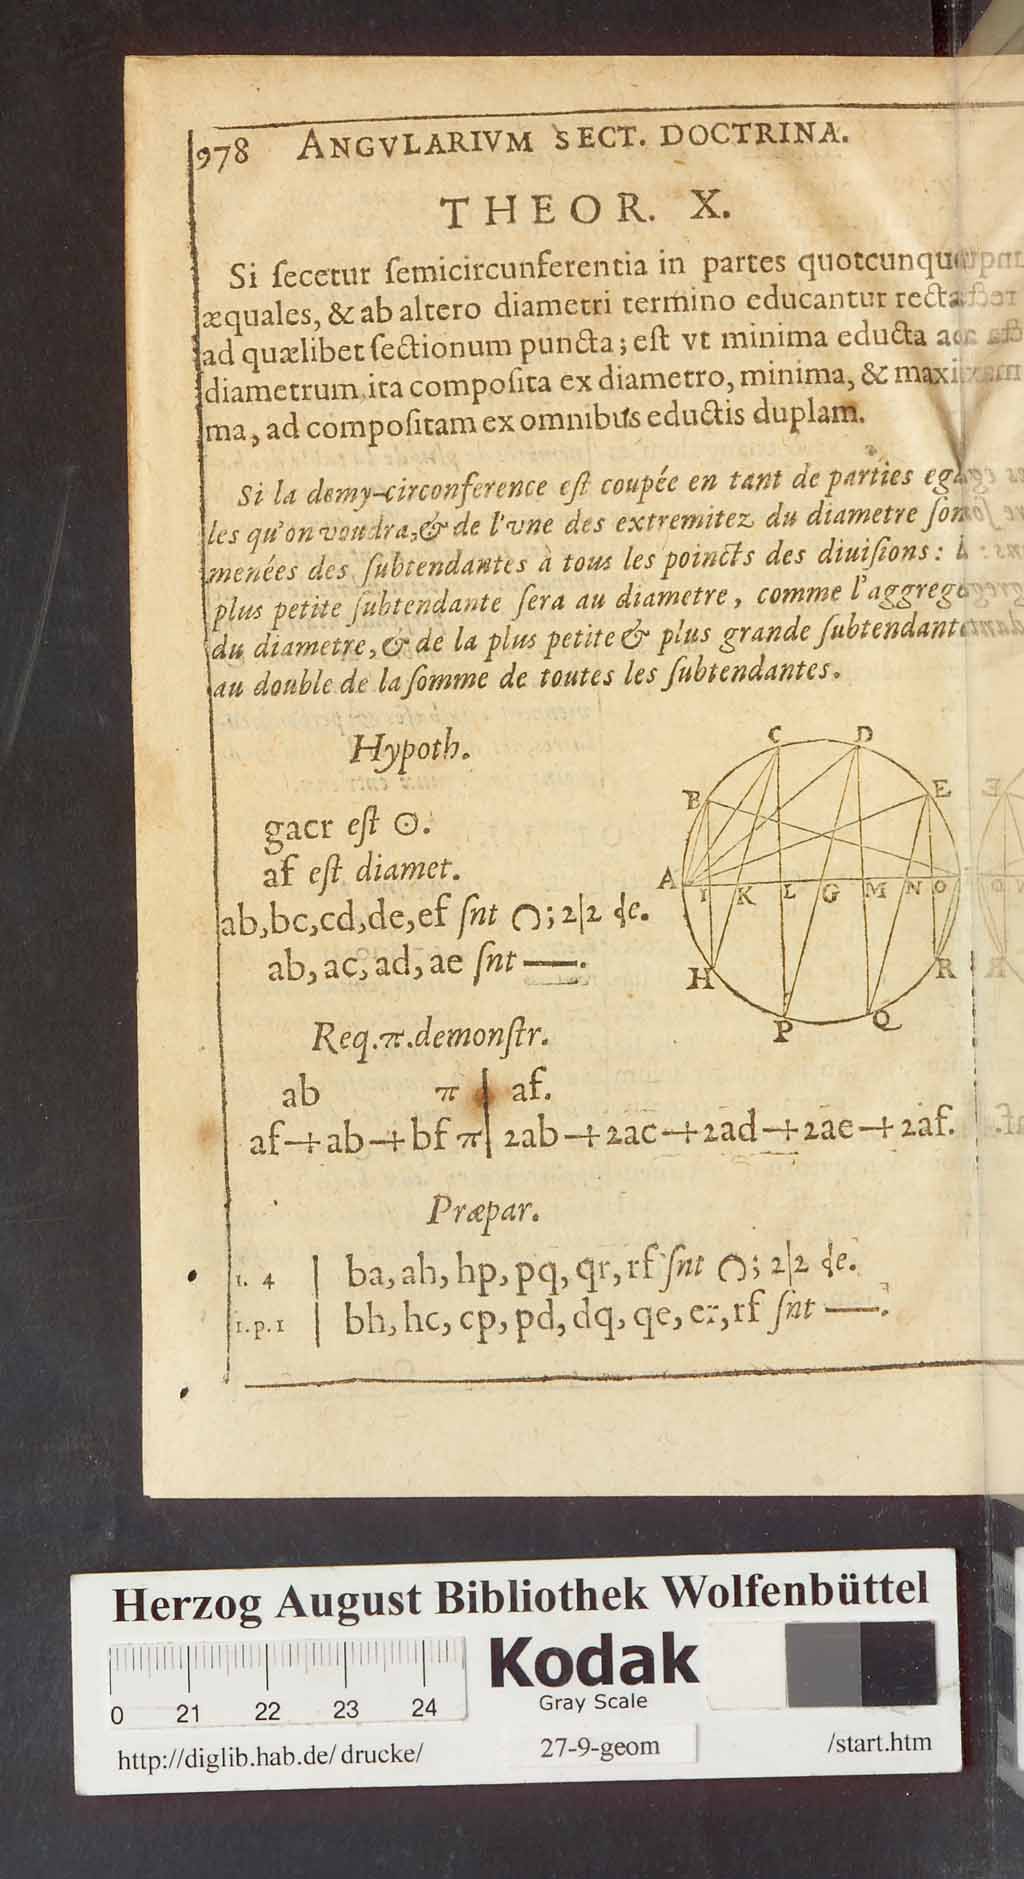 978 ANGVLARIVM SECT. DOCTRINA.
THEOR. X.
Si ſecetur ſemicircunferentia in partes quotcunque
æquales, & ab altero diametri termino educantur rectæ
ad quælibet ſectionum puncta; eſt vt minima educta
diametrum, ita compoſita ex diametro, minima, & maxi
ma, ad compoſitam ex omnibus eductis duplam.
Si la demy-circonference eſt coupée en tant de parties ega
les qu'on voudra, & de l'vne des extremitez du diametre
menées des ſubtendantes à tous les poincts des diuiſions:
plus petite ſubtendante ſera au diametre, comme l'aggreg
du diametre, & de la plus petite & plus grande ſubtendante
au double de la ſomme de toutes les ſubtendantes.
Hypoth.
gacr eſt ⊙.
af eſt diamet.
ab, bc, cd, de, ef ſnt ∩; 2|2 ɖe.
ab, ac, ad, ae ſnt —.
C D
B E
A I K L G M N O
H R
P Q
Req. π. demonſtr.
ab π | af.
af + ab + bf π | 2ab + 2ac + 2ad + 2ae + 2af.
Præpar.
1. 4 | ba, ah, hp, pq, qr, rf ſnt ∩; 2|2 ɖe.
1. p. 1 | bh, hc, cp, pd, dq, qe, er, rf ſnt —.
Herzog August Bibliothek Wolfenbüttel
Kodak
Gray Scale
0 21 22 23 24
http://diglib.hab.de/drucke/ 27-9-geom /start.htm